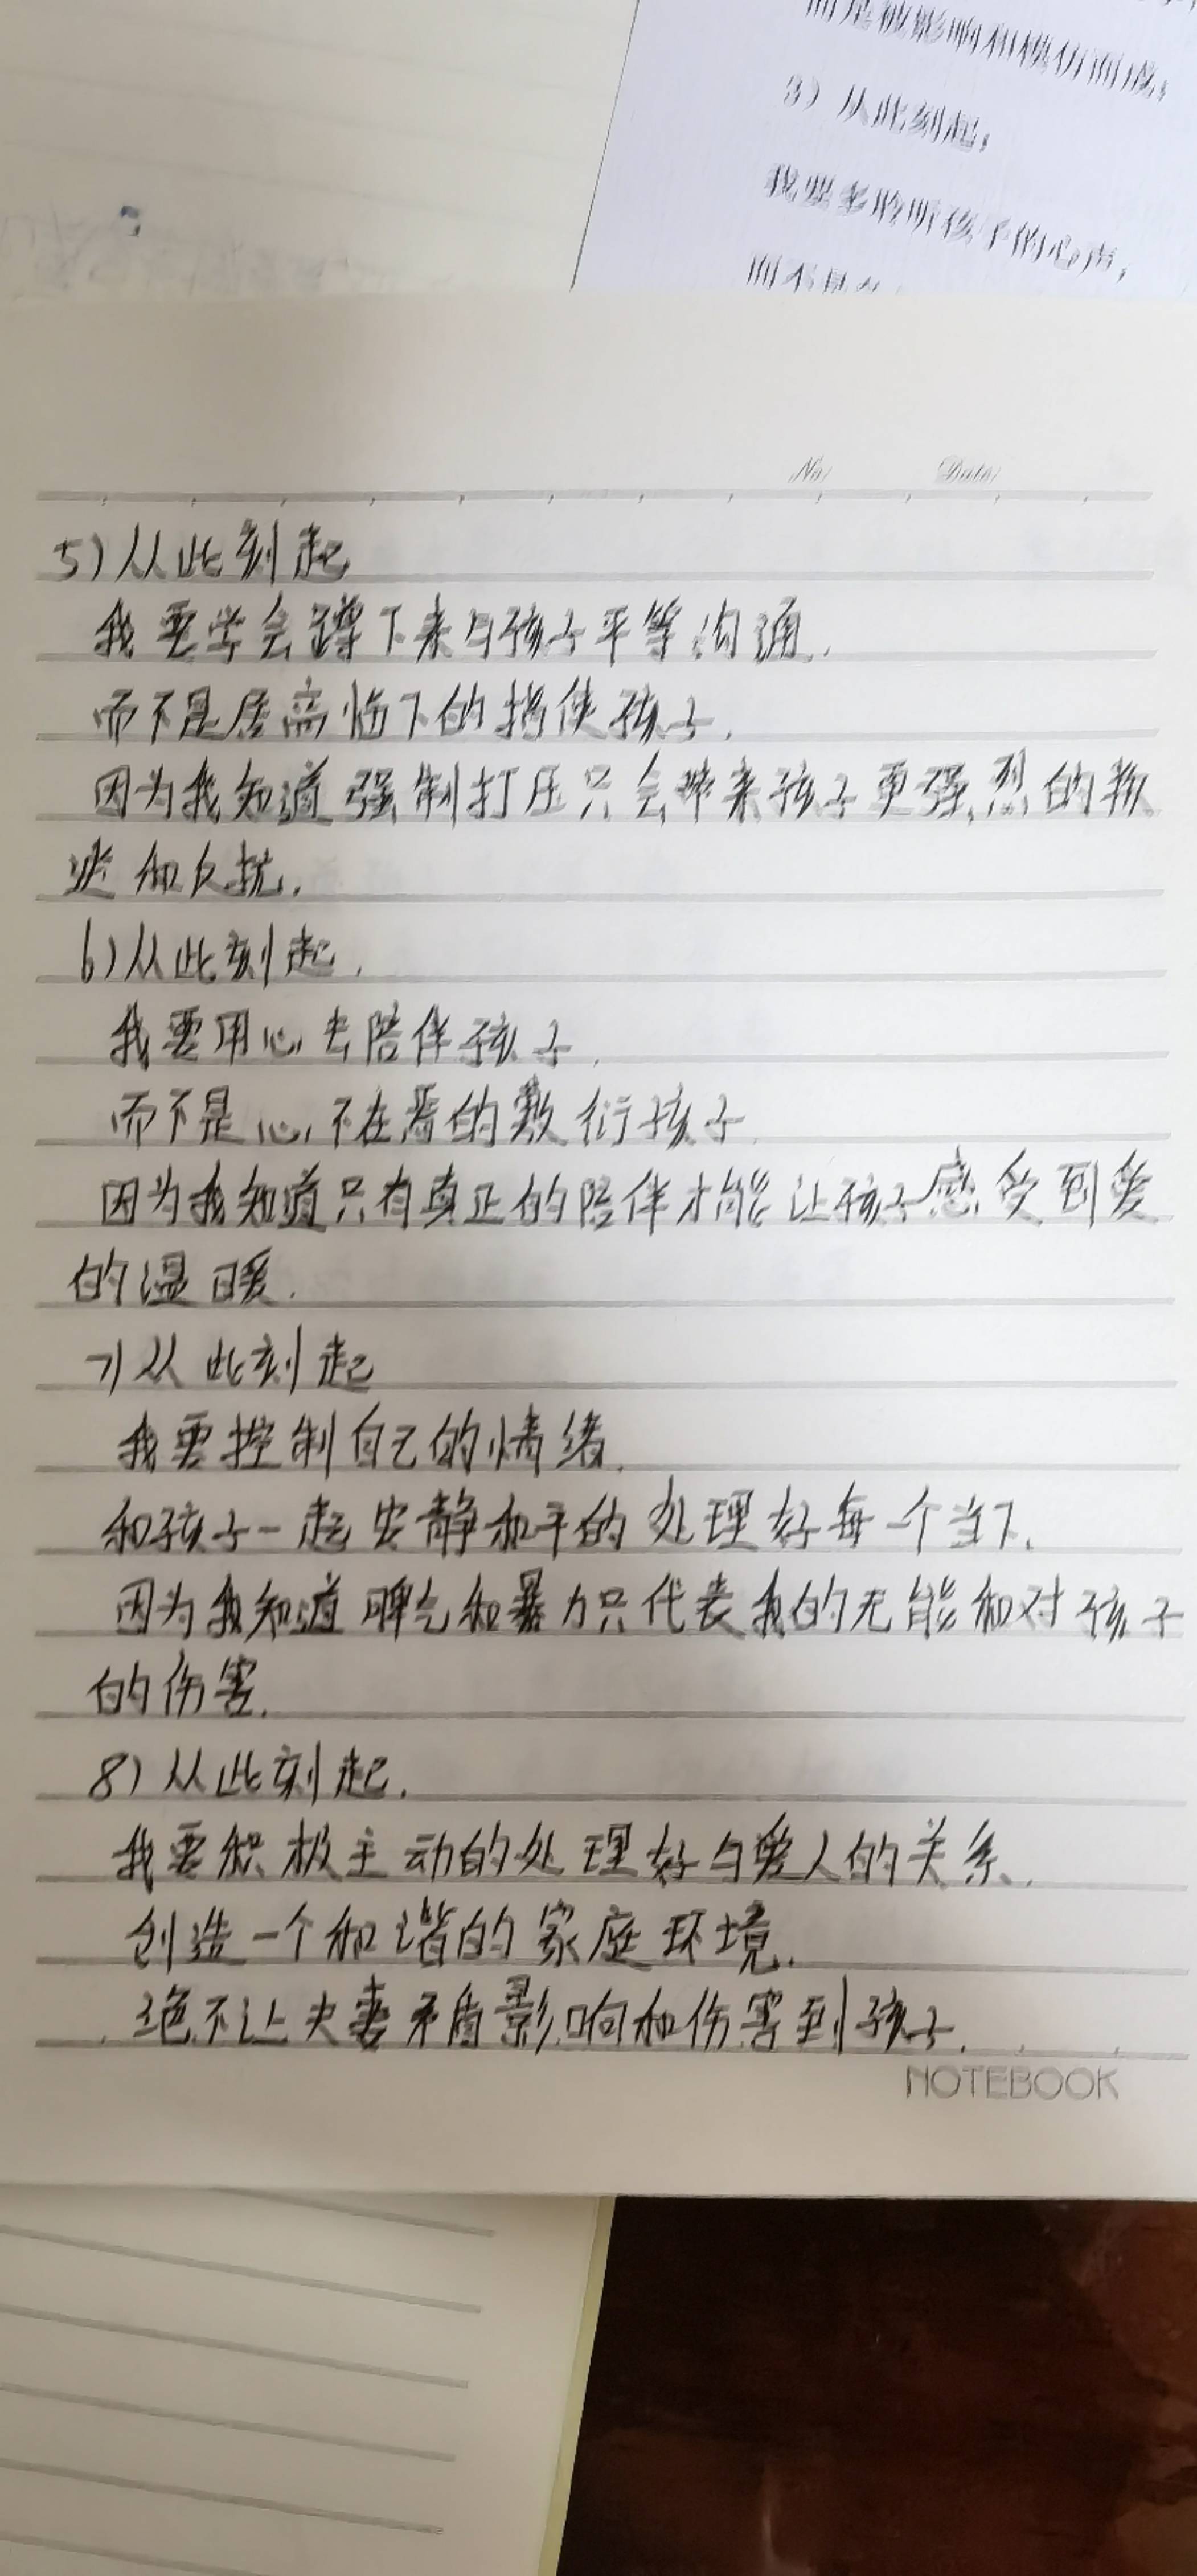 而是被影响和模仿而成，
3）从此刻起，
我要多聆听孩子的心声，
No
Date
5）从此刻起
我要学会蹲下来与孩子平等沟通.
而不是居高临下的指使孩子.
因为我知道强制打压只会带来孩子更强烈的叛
逆和反抗.
6）从此刻起.
我要用心去陪伴孩子.
而不是心不在焉的敷衍孩子
因为我知道只有真正的陪伴才能让孩子感受到爱
的温暖.
7）从此刻起
我要控制自己的情绪.
和孩子一起安静和平的处理好每一个当下.
因为我知道脾气和暴力只代表我的无能和对孩子
的伤害.
8）从此刻起.
我要积极主动的处理好与爱人的关系.
创造一个和谐的家庭环境.
绝不让夫妻矛盾影响和伤害到孩子.
NOTEBOOK